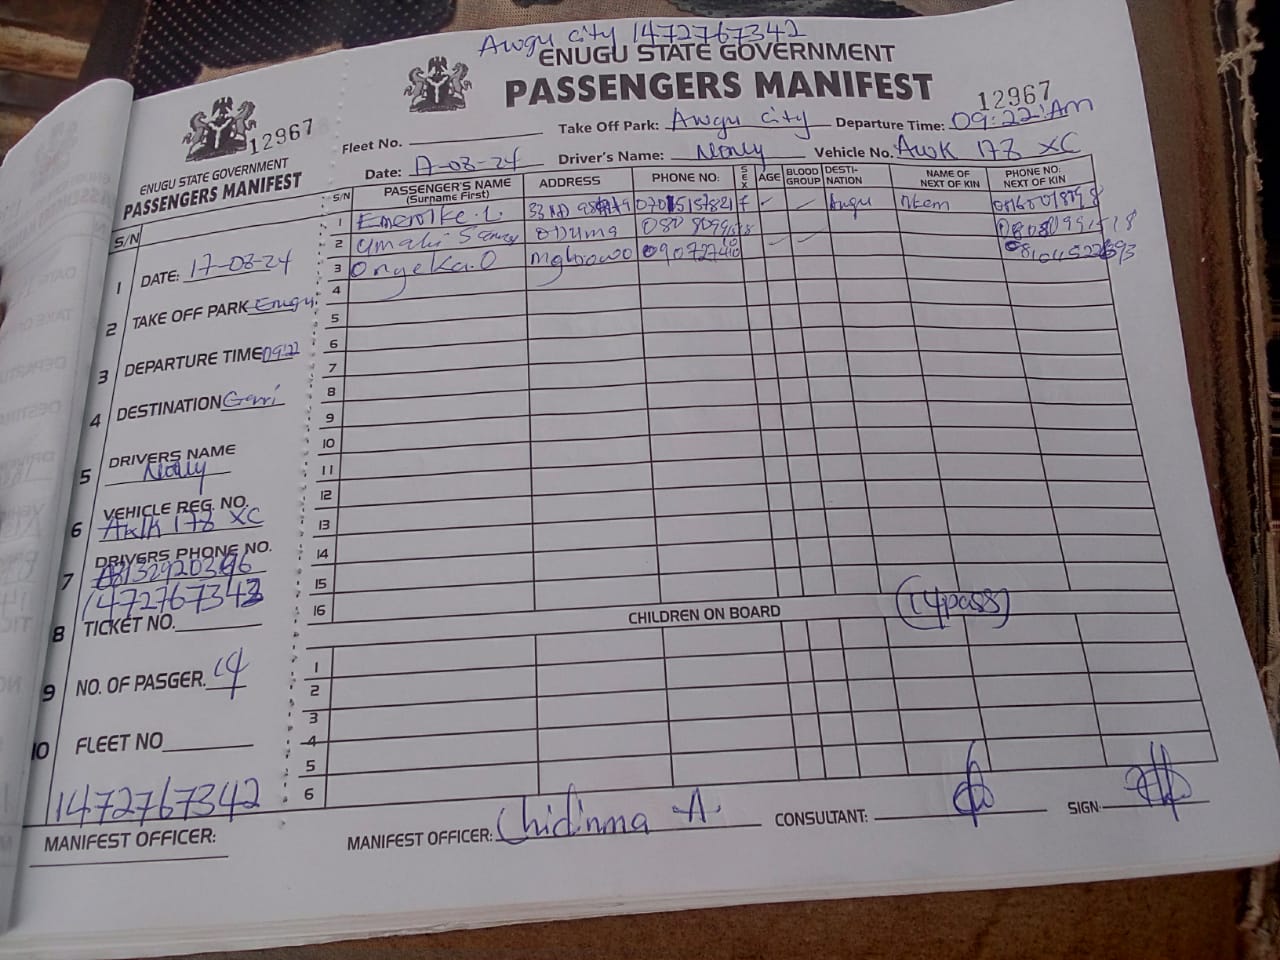 Awgu city 1472767342
ENUGU STATE GOVERNMENT
PASSENGERS MANIFEST
12967
Fleet No. Take Off Park: Awgu city Departure Time: 09:22:Am
Date: 17-08-24 Driver's Name: Vehicle No. AWK 178 XC
S/N PASSENGER'S NAME (Surname First) ADDRESS PHONE NO: SEX AGE BLOOD GROUP DESTI-NATION NAME OF NEXT OF KIN PHONE NO: NEXT OF KIN
1 f Awgu Nkem
2 Oduma
3 Onyeka.O Mgbowo
4
5
6
7
8
9
10
11
12
13
14
15
16
CHILDREN ON BOARD (14pass)
1
2
3
4
5
6
MANIFEST OFFICER: Chidinma A. CONSULTANT: SIGN:
12967
ENUGU STATE GOVERNMENT
PASSENGERS MANIFEST
S/N
1 DATE: 17-08-24
2 TAKE OFF PARK Enugu
3 DEPARTURE TIME 09:22
4 DESTINATION
5 DRIVERS NAME
6 VEHICLE REG. NO.
AWK 178 XC
7 DRIVERS PHONE NO.
8 TICKET NO.
9 NO. OF PASGER. 14
10 FLEET NO
1472767342
MANIFEST OFFICER: